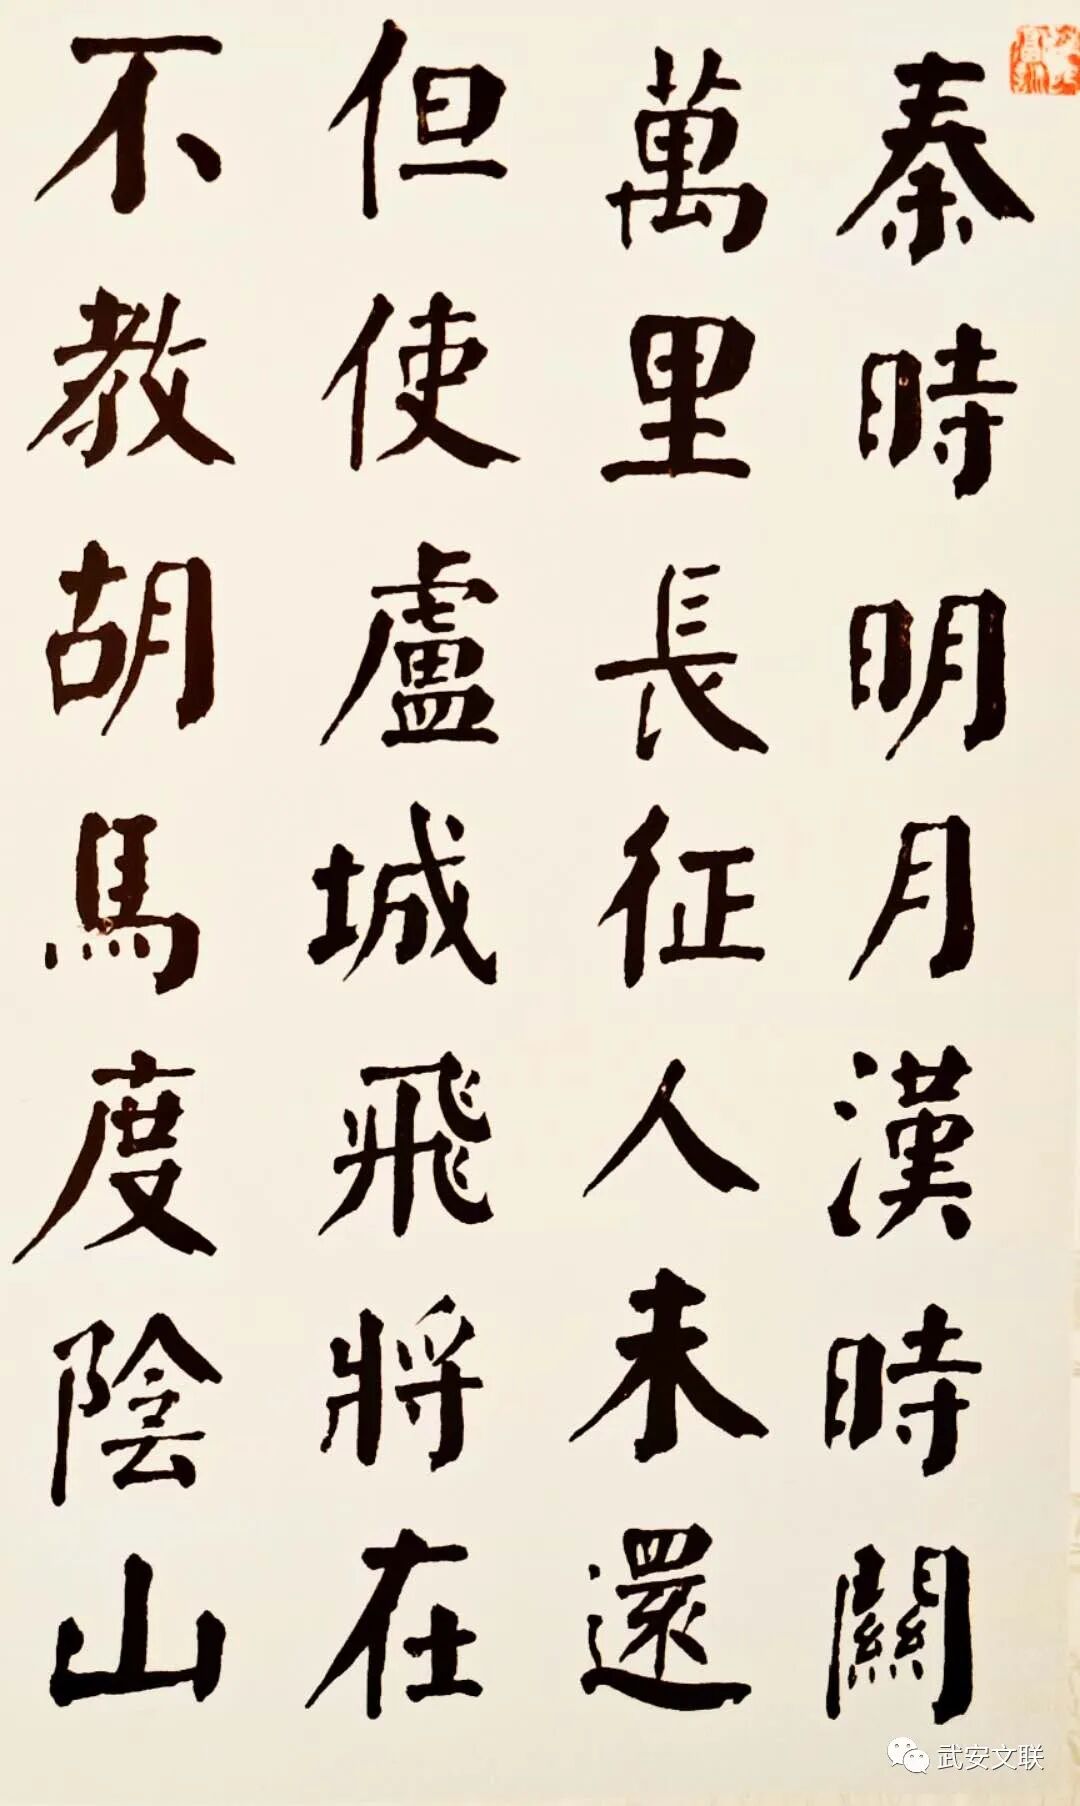 秦時明月漢時關
萬里長征人未還
但使盧城飛將在
不教胡馬度陰山
武安文联